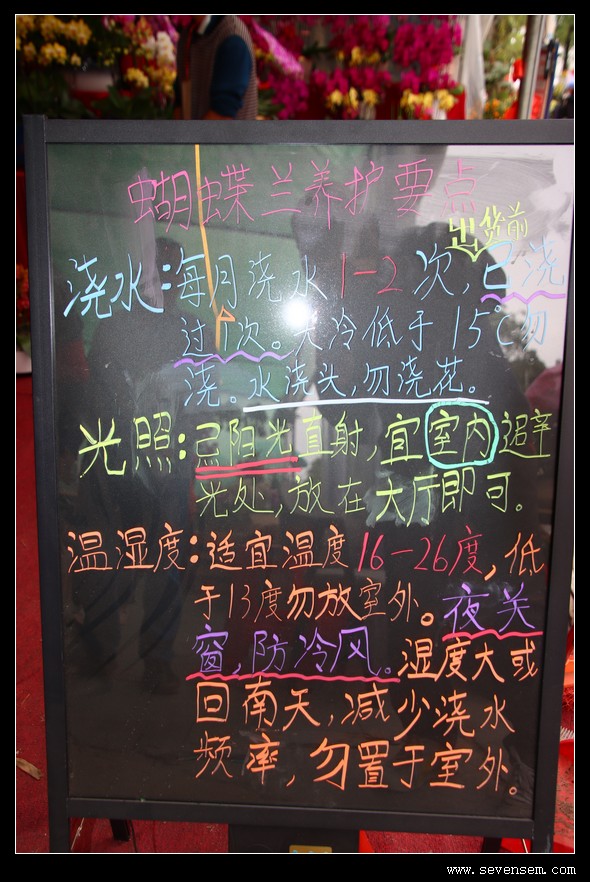 蝴蝶兰养护要点
出货前
浇水:每月浇水1-2次,已浇
过1次。天冷低于15℃勿
浇。水浇头,勿浇花。
光照:忌阳光直射,宜室内避辛
光处,放在大厅即可。
温湿度:适宜温度16-26度,低
于13度勿放室外。夜关
窗,防冷风。湿度大或
回南天,减少浇水
频率,勿置于室外。
www.sevensem.com